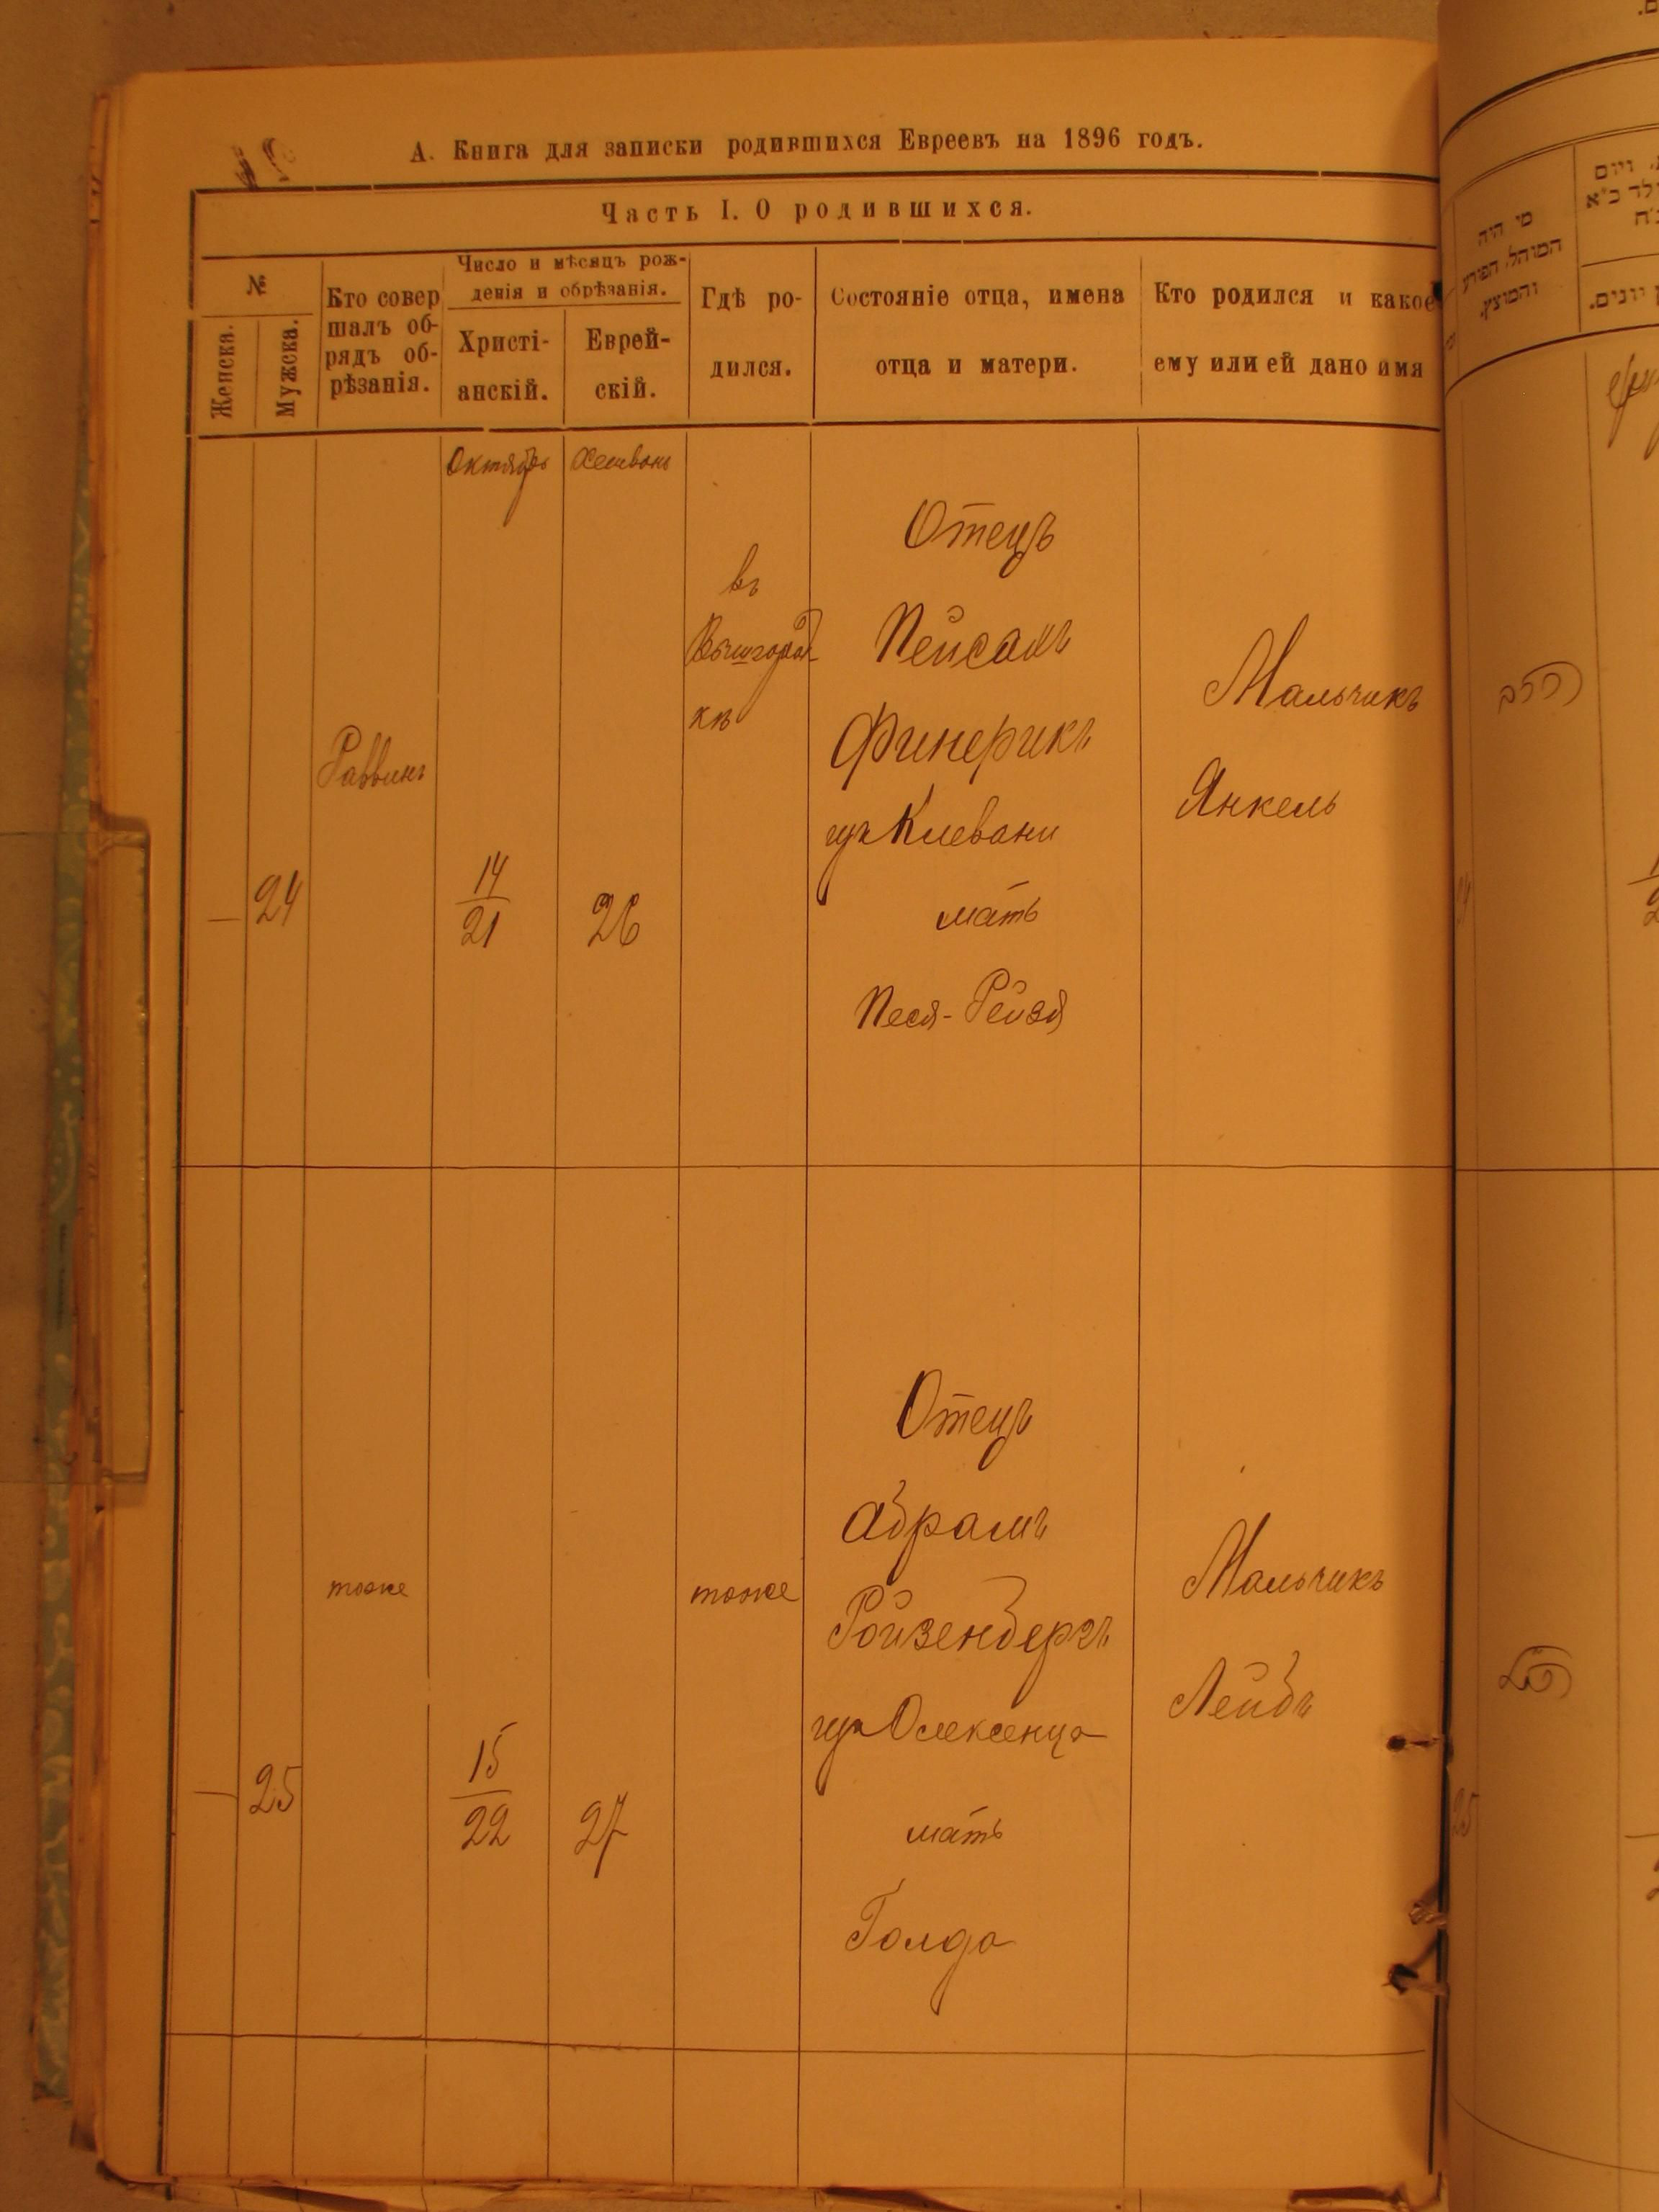 А. Книга для записки родившихся Евреевъ на 1896 годъ.
Часть I. О родившихся.
№
Женска.
Мужска.
Кто совер
шалъ об-
рядъ об-
рѣзанія.
Число и мѣсяцъ рож-
денія и обрѣзанія.
Христі-
анскій.
Еврей-
скій.
Гдѣ ро-
дился.
Состояніе отца, имена
отца и матери.
Кто родился и какое
ему или ей дано имя
Октябрь
Хешвонъ
—
24
Раввинъ
14
21
26
въ
Вышгород-
кѣ
Отецъ
Пейсахъ
Финерикъ
Клевани
мать
Песя-Рейзя
Мальчикъ
Янкель
—
25
тоже
15
22
27
тоже
Отецъ
Абрамъ
Ройзенбергъ
Олексенца
мать
Голда
Мальчикъ
Лейбъ
מי היה
המוהל, הפורע
והמוצץ.
ויום
יונים.
הרב
24
25